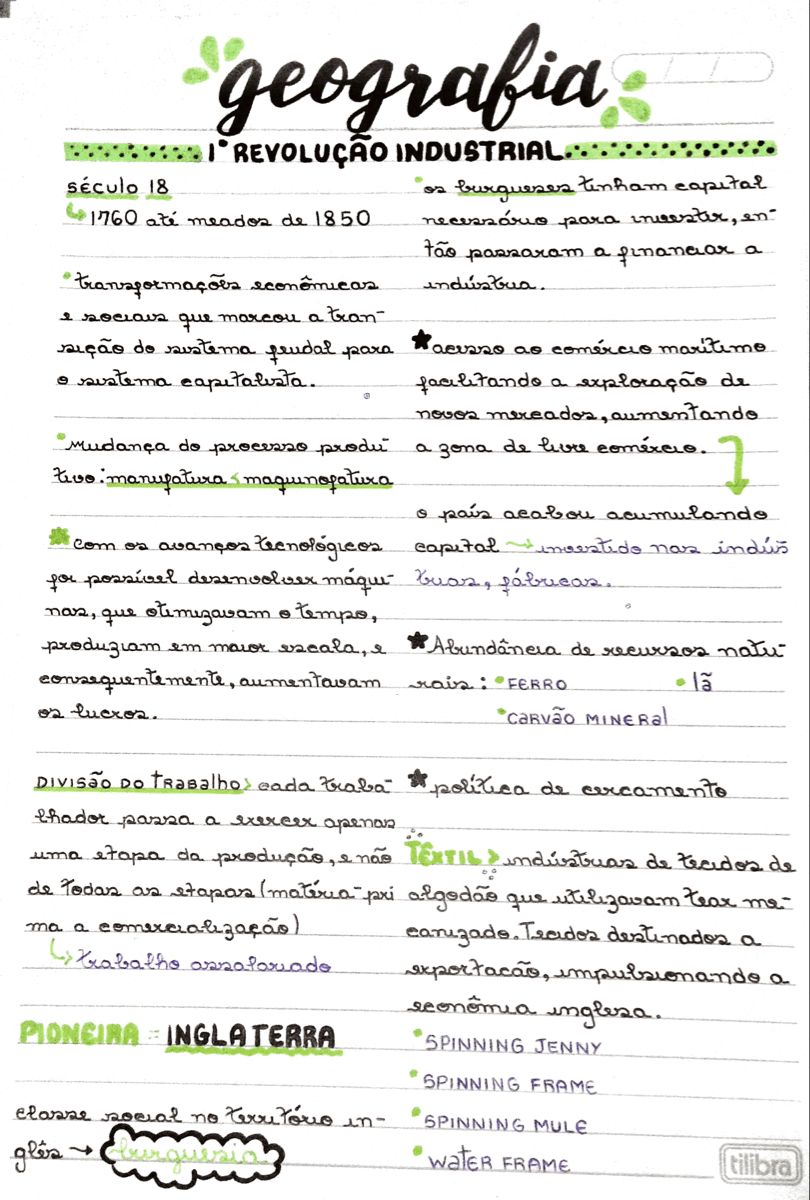 geografia
1° REVOLUÇÃO INDUSTRIAL
SÉCULO 18
↳1760 até meados de 1850
•transformações econômicas
e sociais que marcou a tran-
sição do sistema feudal para
o sistema capitalista.
•Mudança do processo produ-
tivo: manufatura < maquinofatura
*Com os avanços tecnológicos
foi possível desenvolver máqui-
nas, que otimizavam o tempo,
produziam em maior escala, e
consequentemente, aumentavam
os lucros.
DIVISÃO DO TRABALHO> cada traba-
lhador passa a exercer apenas
uma etapa da produção, e não
de todas as etapas (matéria-pri
ma a comercialização)
↳trabalho assalariado
PIONEIRA = INGLATERRA
classe social no território in-
glês → burguesia
•os burgueses tinham capital
necessário para investir, en-
tão passaram a financiar a
indústria.
*acesso ao comércio marítimo
facilitando a exploração de
novos mercados, aumentando
a zona de livre comércio.
o país acabou acumulando
capital → investido nas indús
trias, fábricas.
*Abundância de recursos natu-
rais: •FERRO •lã
•CARVÃO MINERAL
*política de cercamento
TÊXTIL> indústrias de tecidos de
algodão que utilizavam tear me-
canizado. Tecidos destinados a
exportacão, impulsionando a
econômia inglesa.
•SPINNING JENNY
•SPINNING FRAME
•SPINNING MULE
•WATER FRAME
tilibra